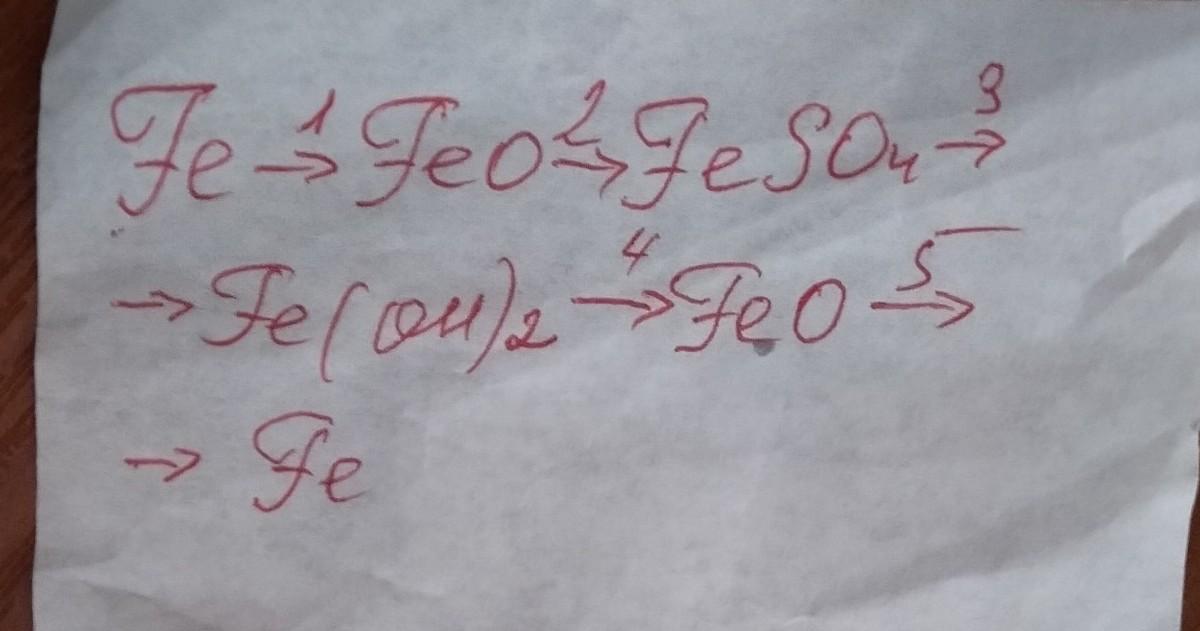 Fe 1→ FeO 2→ FeSO₄ 3→
→ Fe(OH)₂ 4→ FeO 5→
→ Fe